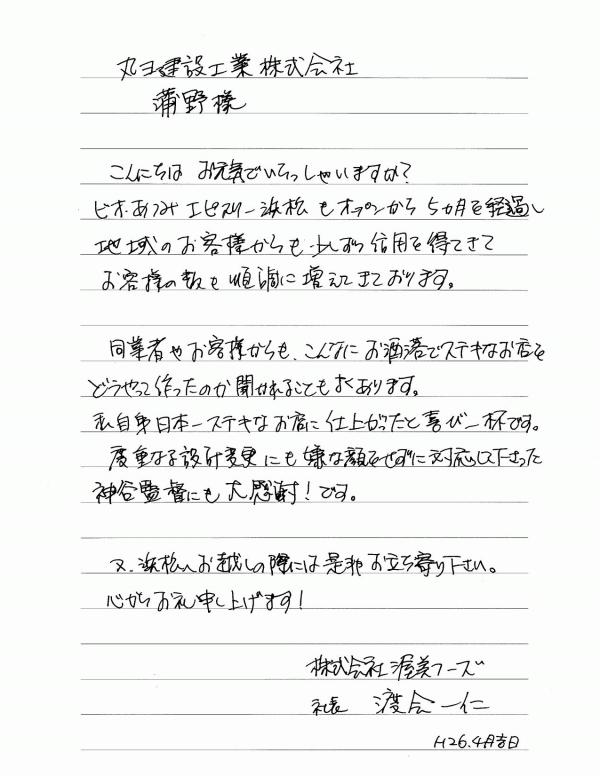 丸ヨ建設工業株式会社
蒲野様
こんにちは お元気でいらっしゃいますか?
ビオ・あつみエピスリー浜松もオープンから5カ月を経過し
地域のお客様からも少しずつ信用を得てきて
お客様の数も順調に増えてきております。
同業者やお客様からも、こんなにお洒落でステキなお店を
どうやって作ったのか聞かれることも多くあります。
私自身日本一ステキなお店に仕上がったと喜び一杯です。
度重なる設計変更にも嫌な顔をせずに対応し下さった
神谷監督にも大感謝!です。
又、浜松へお越しの際には是非お立ち寄り下さい。
心からお礼申し上げます!
株式会社渥美フーズ
社長 渡会一仁
H26.4月吉日